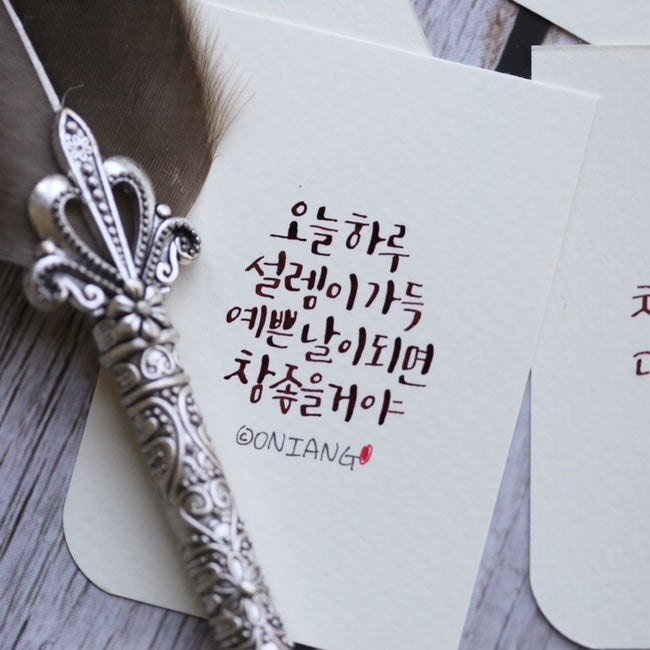 오늘 하루
설렘이 가득
예쁜 날이 되면
참 좋을거야
©ONIANG